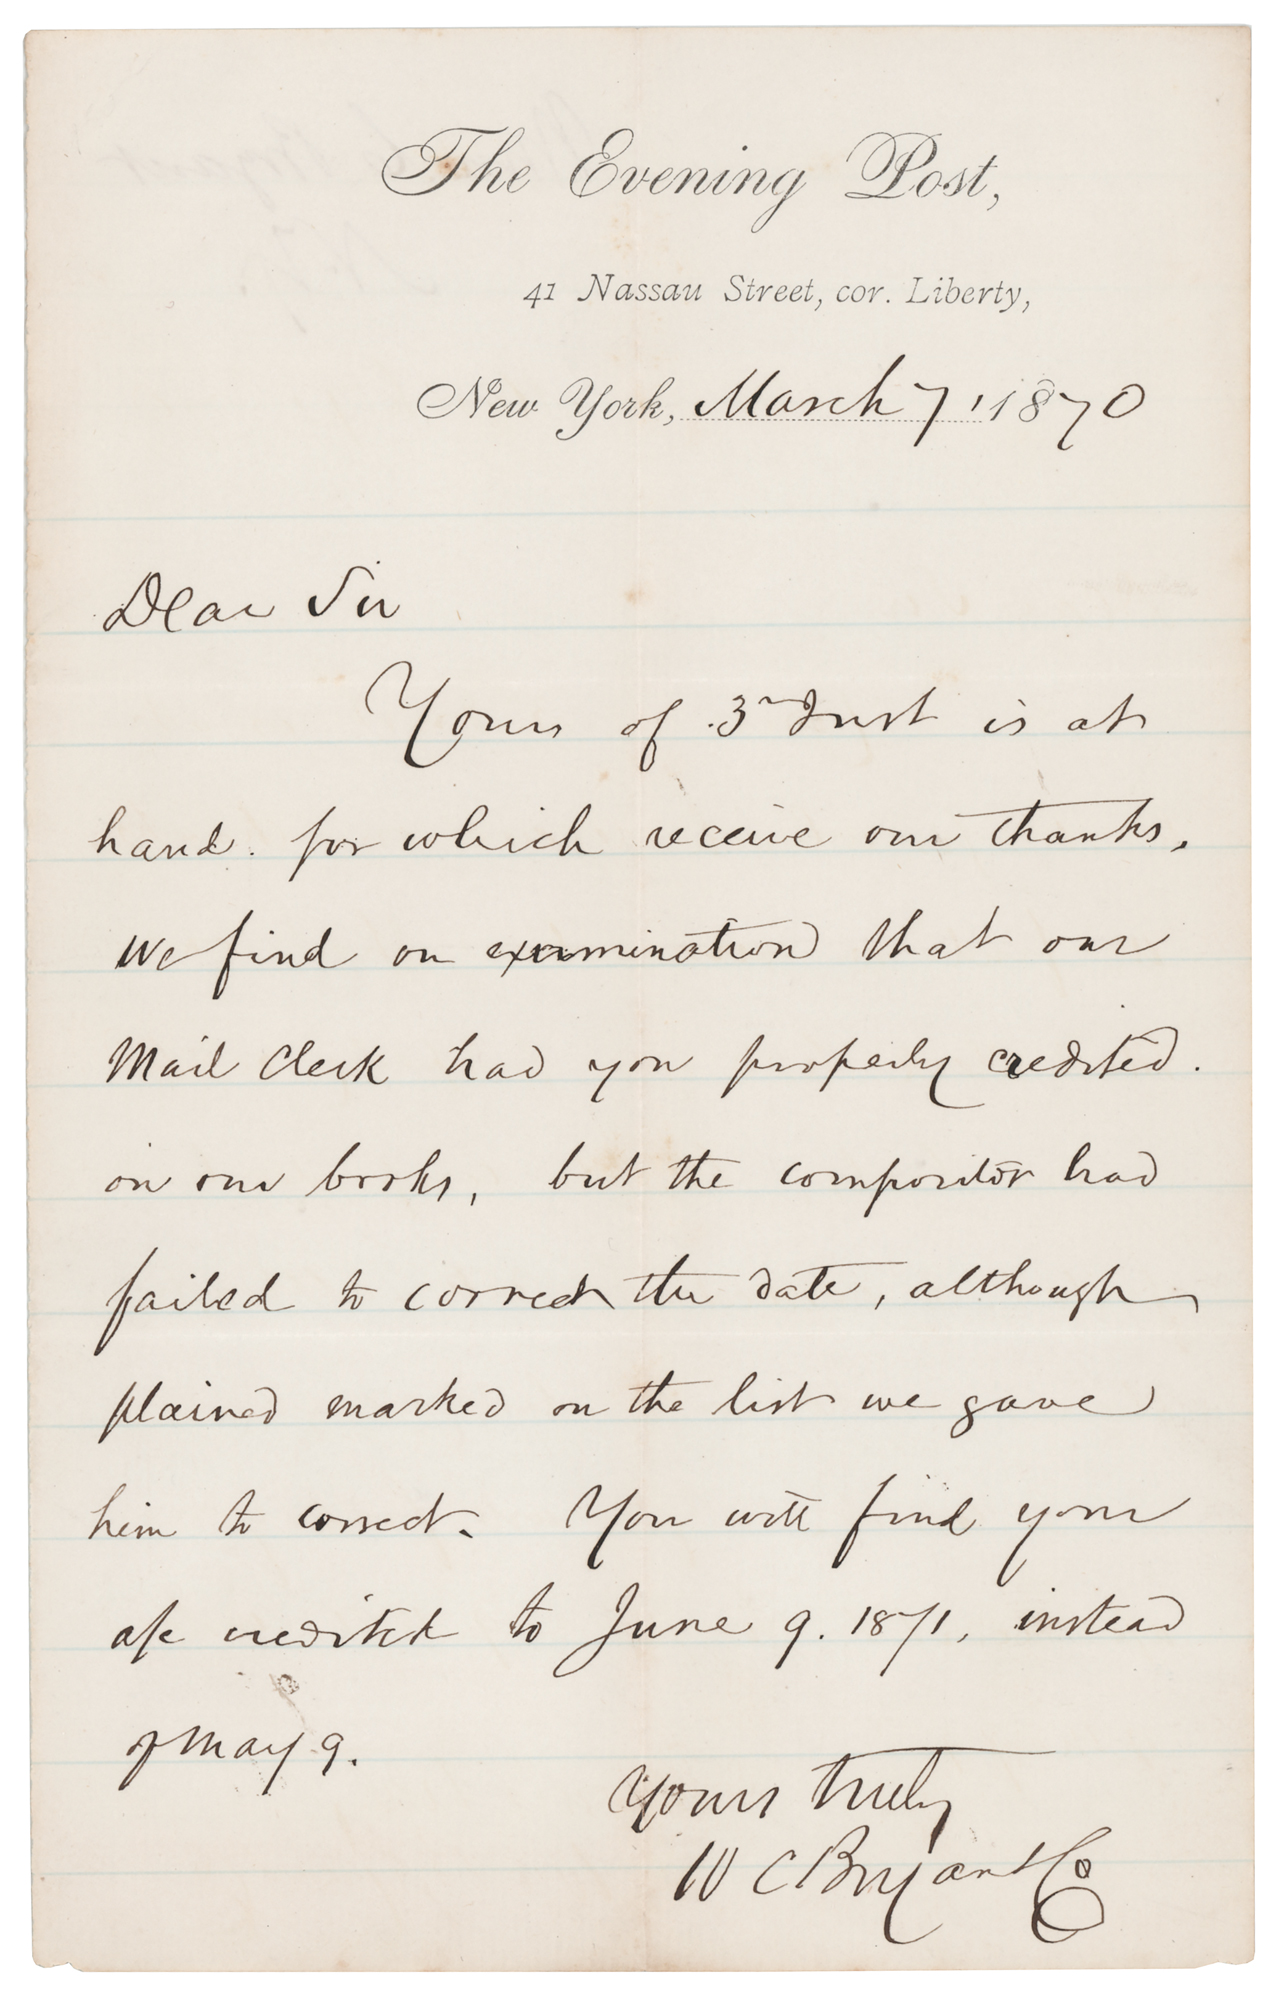 The Evening Post,
41 Nassau Street, cor. Liberty,
New York, March 7, 1870
Dear Sir
Yours of 3r Inst is at
hand. for which receive our thanks.
We find on examination that our
Mail Clerk had you properly credited.
on our books, but the compositor had
failed to correct the date, although
plained marked on the list we gave
him to correct. You will find your
a/c credited to June 9. 1871, instead
of May 9.
Yours truly
W C Bryant & Co